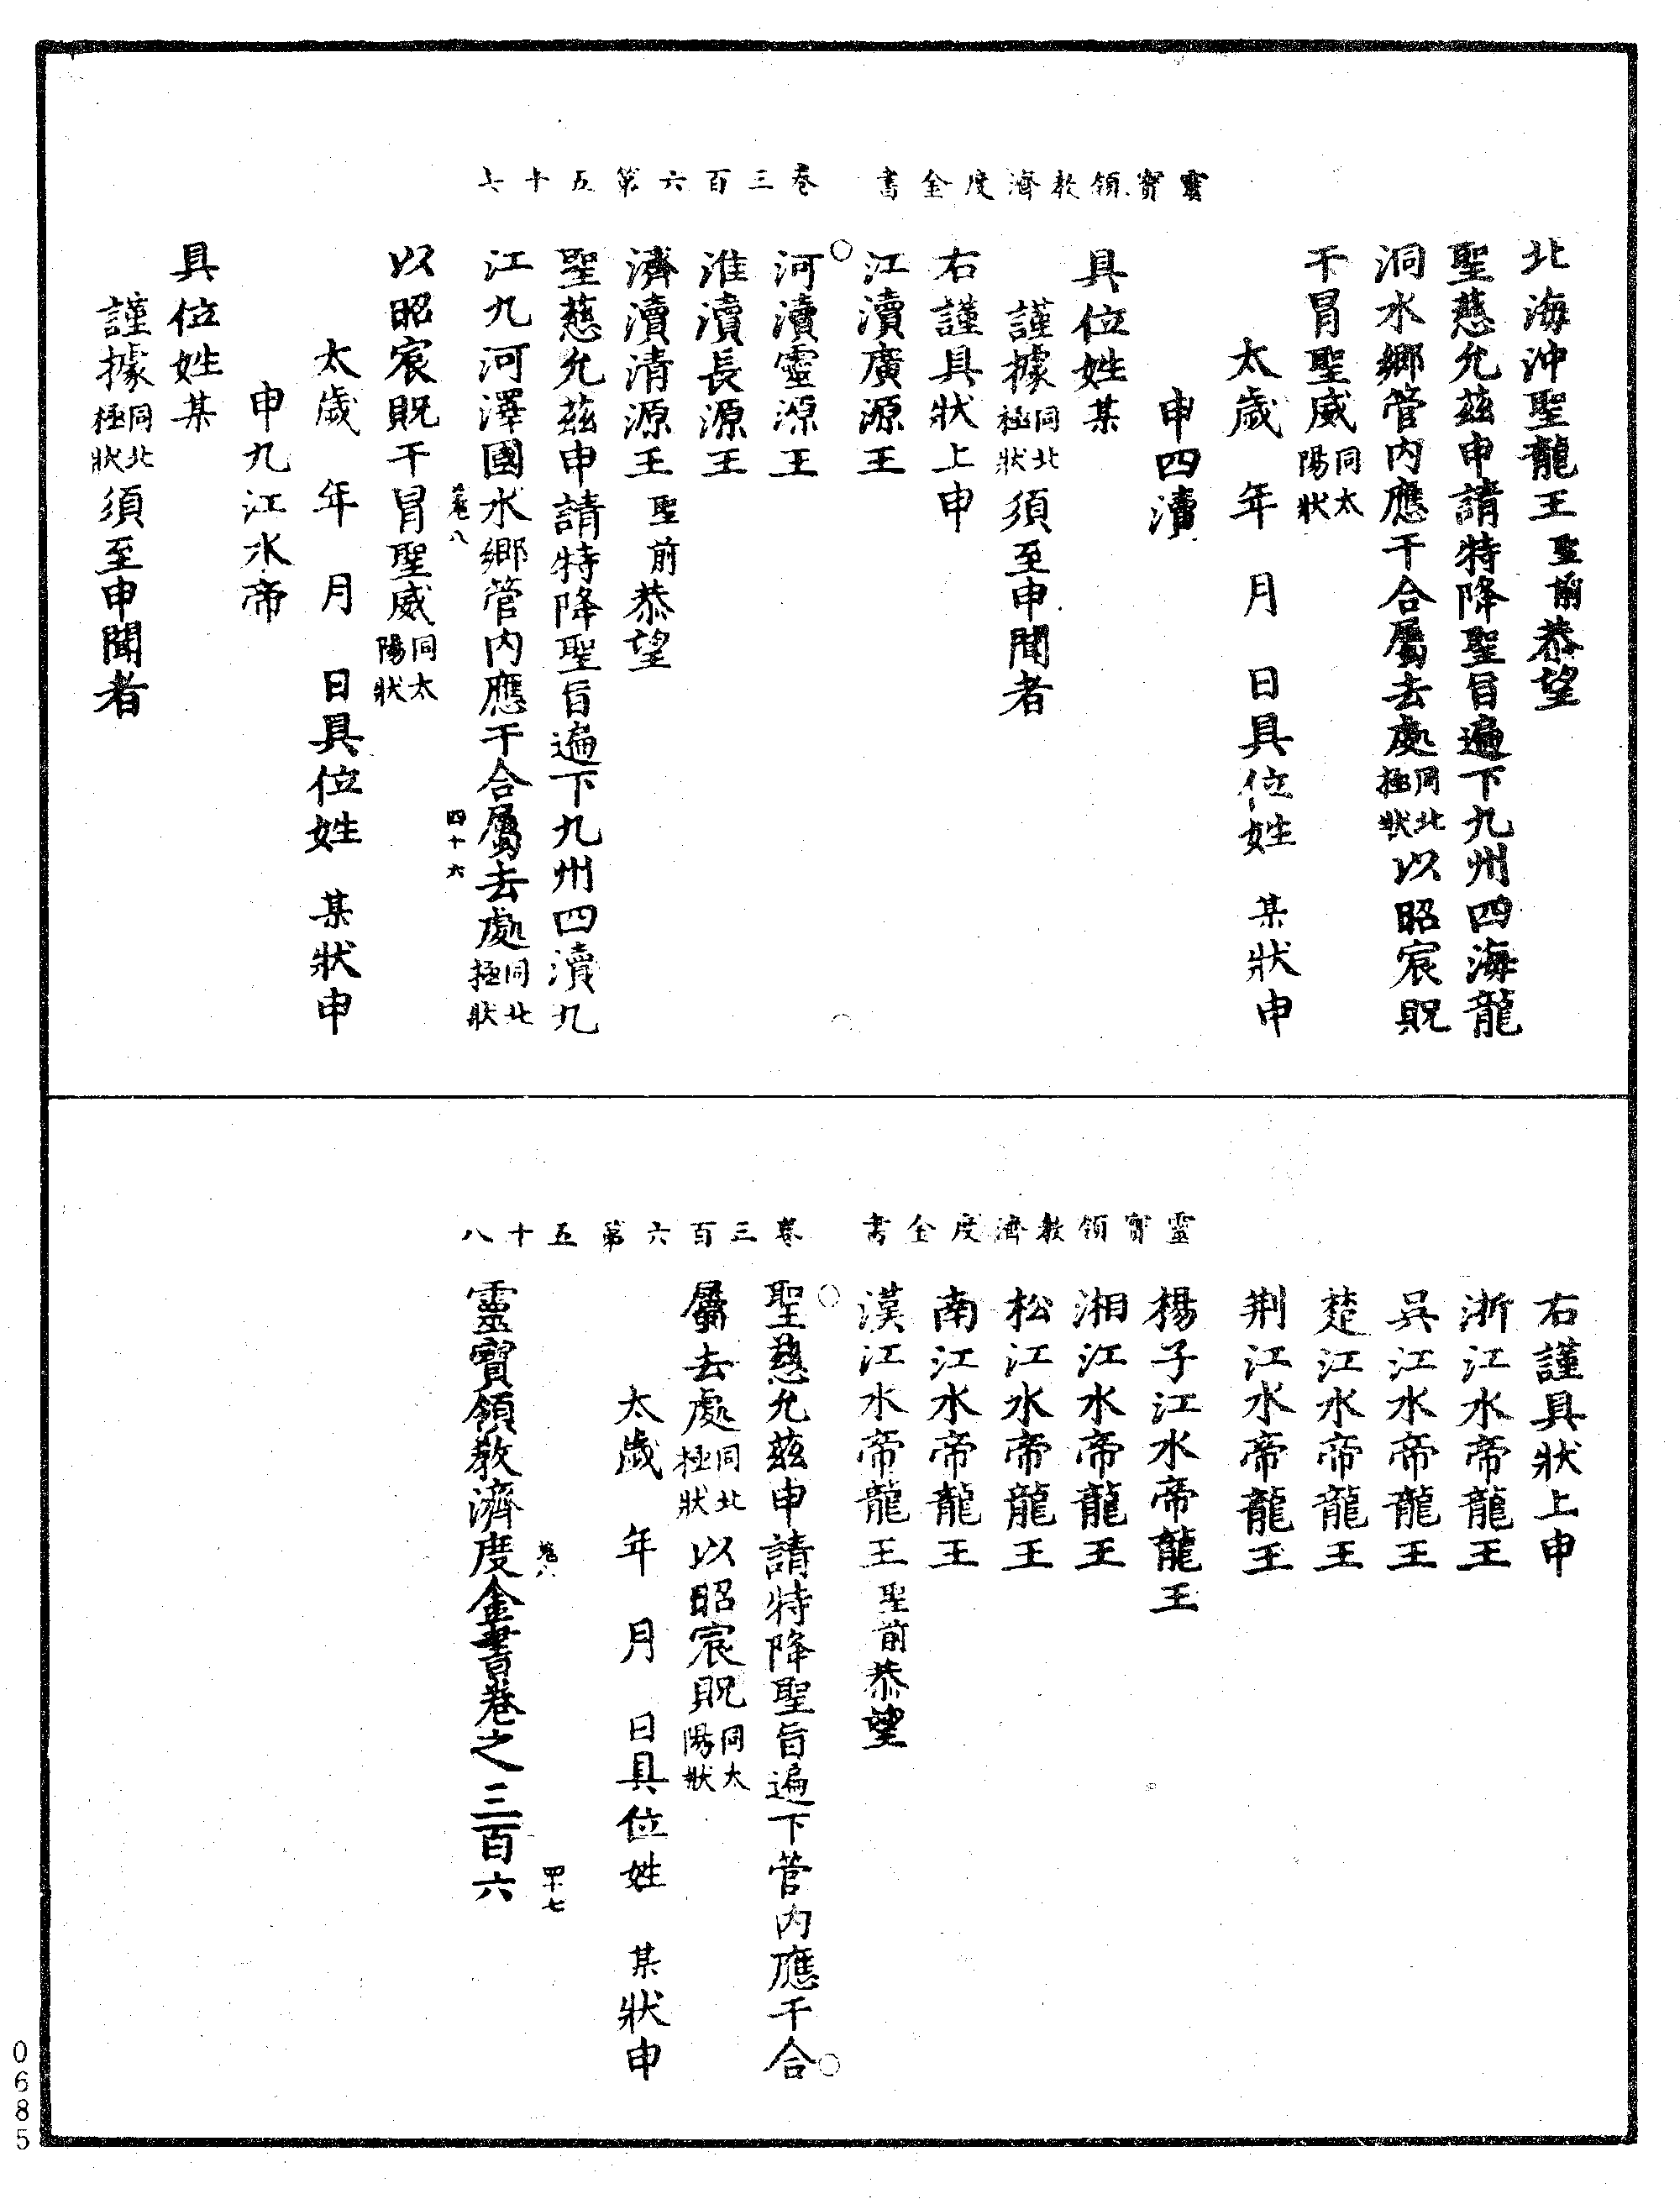 靈寶領教濟度金書　卷三百六第五十七
北海沖聖龍王聖前恭望
聖慈允茲申請特降聖旨遍下九州四海龍
洞水鄉管內應干合屬去處同北極狀以昭宸貺
干冒聖威同太陽狀
太歲　年　月　日具位姓　某狀申
申四瀆
具位姓某
謹據同北極狀須至申聞者
右謹具狀上申
江瀆廣源王
河瀆靈源王
淮瀆長源王
濟瀆清源王聖前恭望
聖慈允茲申請特降聖旨遍下九州四瀆九
江九河澤國水鄉管內應干合屬去處同北極狀
卷八　四十六
以昭宸貺干冒聖威同太陽狀
太歲　年　月　日具位姓　某狀申
申九江水帝
具位姓某
謹據同北極狀須至申聞者
靈寶領教濟度金書　卷三百六第五十八
右謹具狀上申
浙江水帝龍王
吳江水帝龍王
楚江水帝龍王
荆江水帝龍王
楊子江水帝龍王
湘江水帝龍王
松江水帝龍王
南江水帝龍王
漢江水帝龍王聖前恭望
聖慈允茲申請特降聖旨遍下管內應干合
屬去處同北極狀以昭宸貺同太陽狀
太歲　年　月　日具位姓　某狀申
卷八　四十七
靈寶領教濟度金書卷之三百六
0685